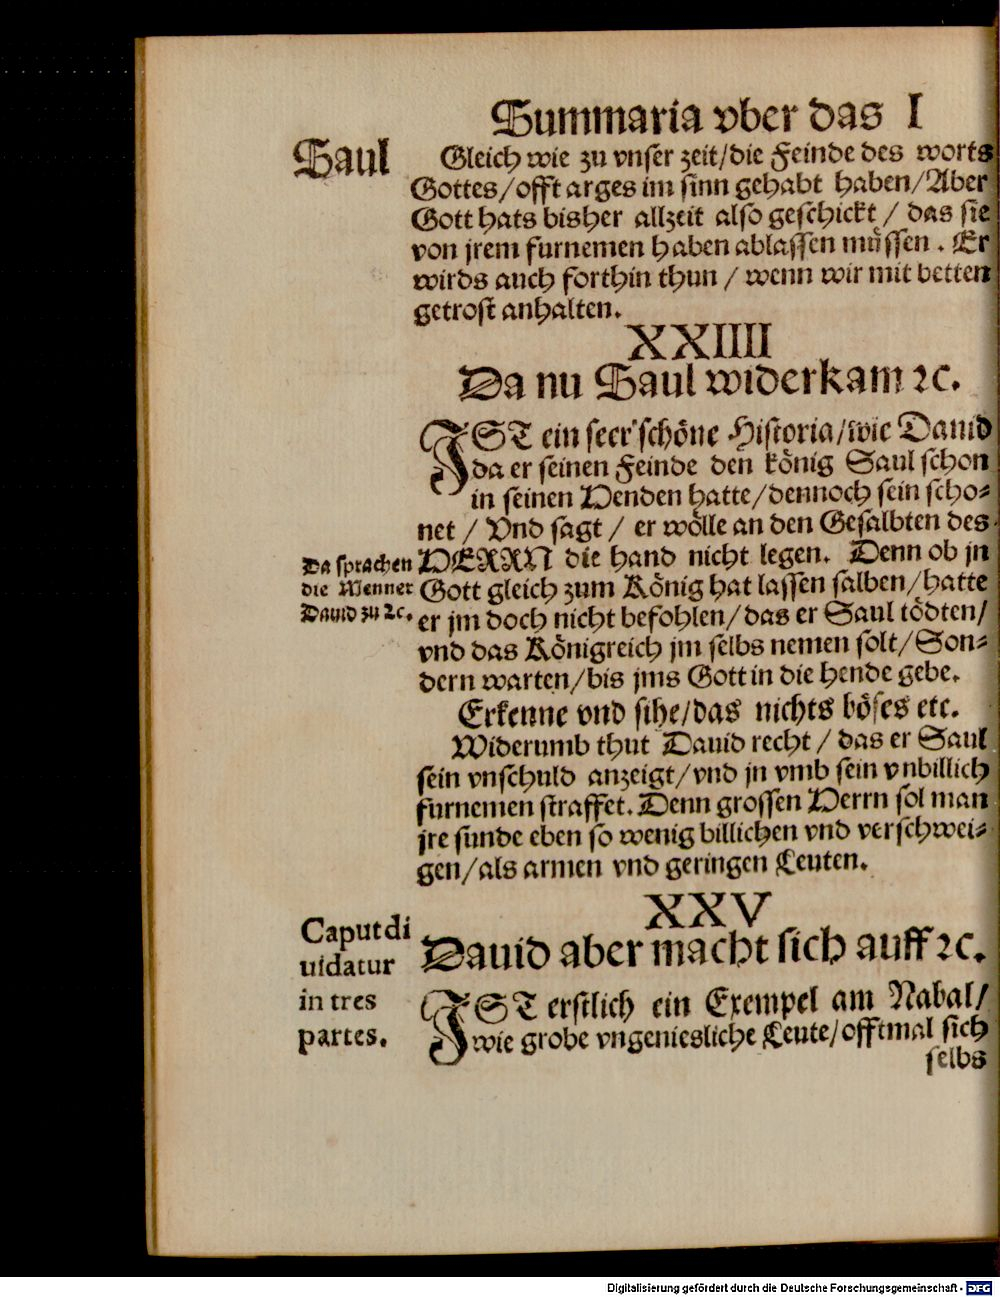 Summaria vber das I
Saul
Gleich wie zu vnser zeit/die Feinde des worts
Gottes/offt arges im sinn gehabt haben/Aber
Gott hats bisher allzeit also geschickt / das sie
von jrem furnemen haben ablassen müssen. Er
wirds auch forthin thun / wenn wir mit betten
getrost anhalten.
XXIIII
Da nu Saul widerkam ꝛc.
IST ein seer schöne Historia/wie Dauid
da er seinen Feinde den könig Saul schon
in seinen Henden hatte/dennoch sein scho⸗
net / Vnd sagt / er wölle an den Gesalbten des
HERRN die hand nicht legen. Denn ob jn
Gott gleich zum König hat lassen salben/hatte
er jm doch nicht befohlen/das er Saul tödten/
vnd das Königreich jm selbs nemen solt/Son⸗
dern warten/bis jms Gott in die hende gebe.
Da sprachen
die Menner
Dauid zu ꝛc.
Erkenne vnd sihe/das nichts böses etc.
Widerumb thut Dauid recht / das er Saul
sein vnschuld anzeigt/vnd jn vmb sein vnbillich
furnemen straffet. Denn grossen Herrn sol man
jre sunde eben so wenig billichen vnd verschwei⸗
gen/als armen vnd geringen Leuten.
XXV
Dauid aber macht sich auff ꝛc.
Caput di
uidatur
in tres
partes.
IST erstlich ein Exempel am Nabal/
wie grobe vngeniesliche Leute/offtmal sich
selbs
Digitalisierung gefördert durch die Deutsche Forschungsgemeinschaft - DFG